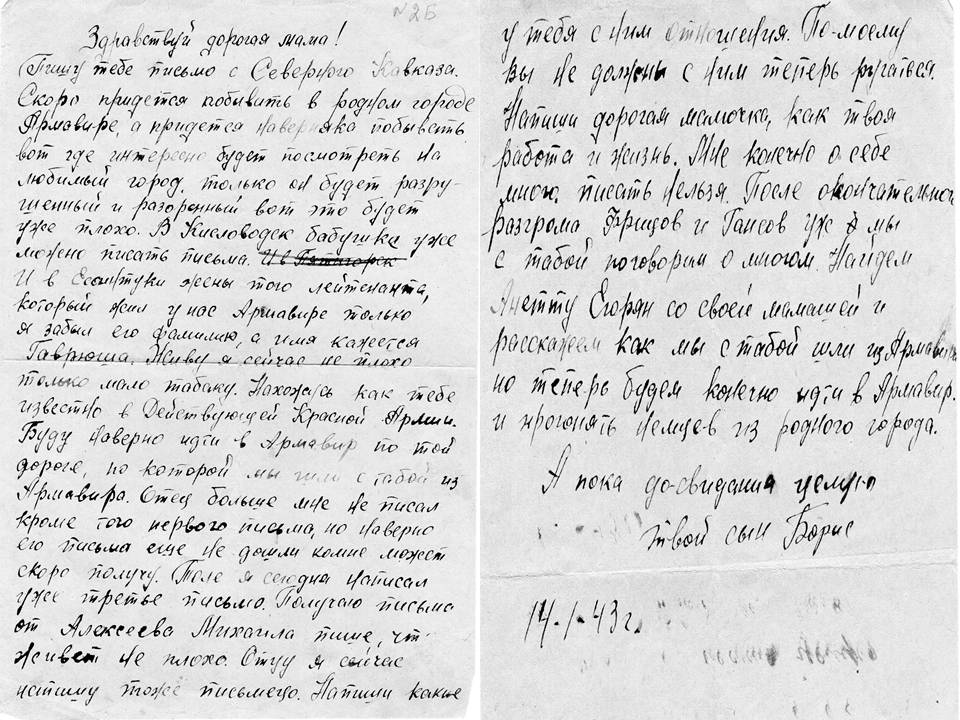 №2Б
Здравствуй дорогая мама!
Пишу тебе письмо с Северного Кавказа.
Скоро придется побывать в родном городе
Армавире, а придется наверняка побывать
вот где интересно будет посмотреть на
любимый город, только он будет разру-
шенный и разоренный вот это будет
уже плохо. В Кисловодск бабушка уже
можно писать письма. И в Пятигорск
И в Есентуки жены того лейтенанта,
который жил у нас Армавире только
я забыл его фамилию, а имя кажется
Гаврюша. Живу я сейчас не плохо
только мало табаку. Нахожусь как тебе
известно в Действующей Красной Армии.
Буду наверно идти в Армавир по той
дороге, по которой мы шли с табой из
Армавира. Отец больше мне не писал
кроме того первого письма, но наверно
его письма еще не дошли комне может
скоро получу. Поле я сегодня написал
уже третье письмо. Получаю письма
от Алексеева Михаила пише, что
живет не плохо. Отцу я сейчас
напишу тоже письмецо. Напиши какие
у тебя с ним отношения. По-моему
вы не должны с ним теперь ругаться.
Напиши дорогая мамочка, как твоя
работа и жизнь. Мне конечно о себе
много писать нельзя. После окончательного
разгрома Фрицов и Гансов уж мы
с табой поговорим о многом. Найдем
Анетту Егорян со своей мамашей и
расскажем как мы с табой шли из Армавира
но теперь будем конечно идти в Армавир.
и прогонять немцев из родного города.
А пока до-свидания целую
твой сын Борис
14-1-43г.